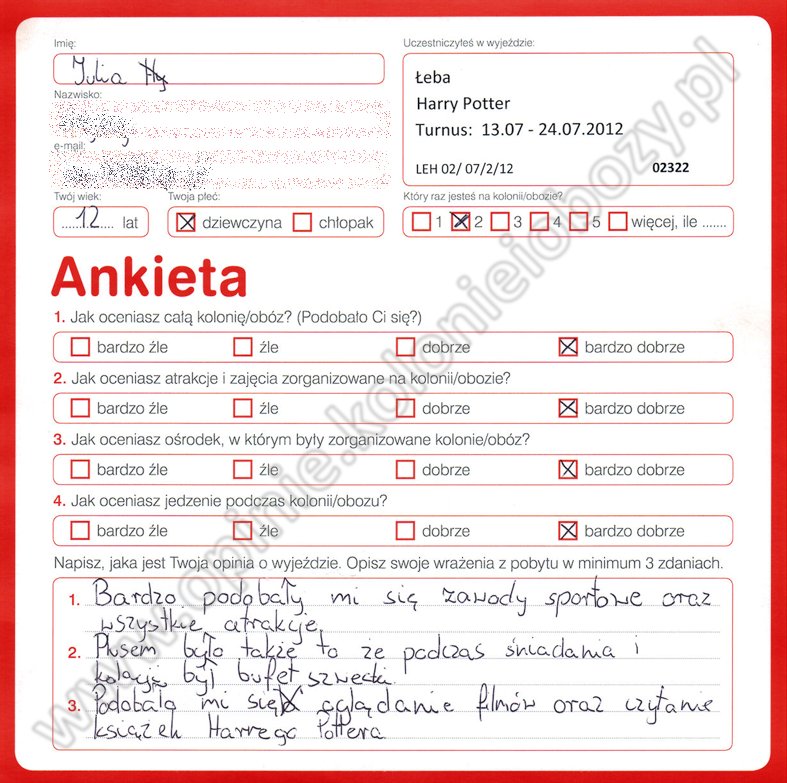 Imię:
Julia
Nazwisko:
e-mail:
Twój wiek:
12 lat
Twoja płeć:
dziewczyna chłopak
Uczestniczyłeś w wyjeździe:
Łeba
Harry Potter
Turnus: 13.07 - 24.07.2012
LEH 02/ 07/2/12 02322
Który raz jesteś na kolonii/obozie?
1 2 3 4 5 więcej, ile .......
Ankieta
1. Jak oceniasz całą kolonię/obóz? (Podobało Ci się?)
bardzo źle źle dobrze bardzo dobrze
2. Jak oceniasz atrakcje i zajęcia zorganizowane na kolonii/obozie?
bardzo źle źle dobrze bardzo dobrze
3. Jak oceniasz ośrodek, w którym były zorganizowane kolonie/obóz?
bardzo źle źle dobrze bardzo dobrze
4. Jak oceniasz jedzenie podczas kolonii/obozu?
bardzo źle źle dobrze bardzo dobrze
Napisz, jaka jest Twoja opinia o wyjeździe. Opisz swoje wrażenia z pobytu w minimum 3 zdaniach.
1. Bardzo podobały mi się zawody sportowe oraz
wszystkie atrakcje.
2. Plusem było także to że podczas śniadania i
kolacji był bufet szwecki.
3. Podobało mi się oglądanie filmów oraz czytanie
książek Harrego Pottera
www.opinie.kolonieiobozy.pl